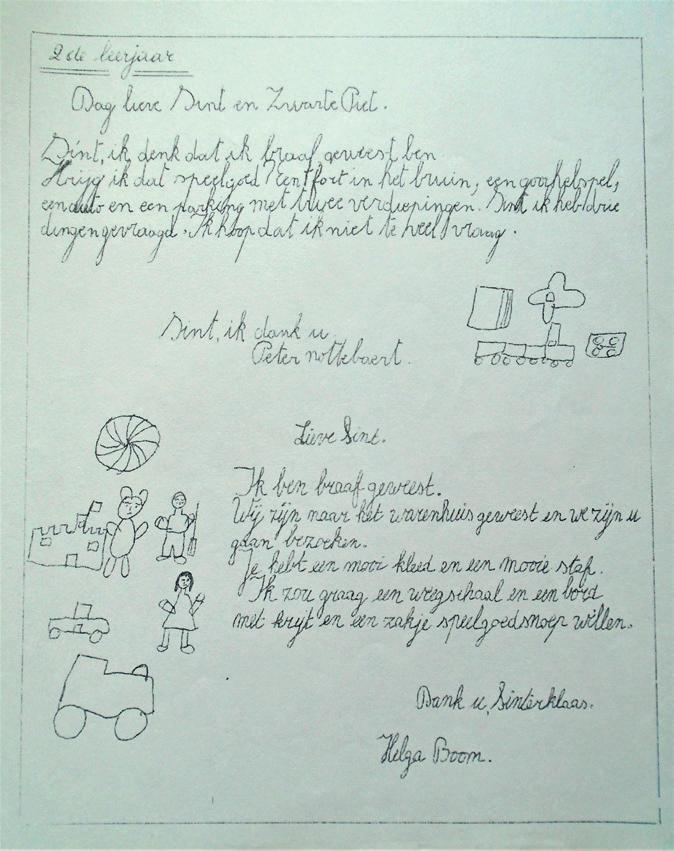 2de leerjaar
Dag lieve Sint en Zwarte Piet.
Sint, ik denk dat ik braaf geweest ben
Krijg ik dat speelgoed? Een fort in het bruin, een goochelspel,
een auto en een parking met twee verdiepingen. Sint ik heb drie
dingen gevraagd. Ik hoop dat ik niet te veel vraag.
Sint, ik dank u.
Peter nottebaert.
Lieve Sint.
Ik ben braaf geweest.
Wij zijn naar het warenhuis geweest en we zijn u
gaan bezoeken.
Je hebt een mooi kleed en een mooie staf.
Ik zou graag een weegschaal en een bord
met krijt en een zakje speelgoedsnoep willen.
Dank u, Sinterklaas.
Helga Boom.